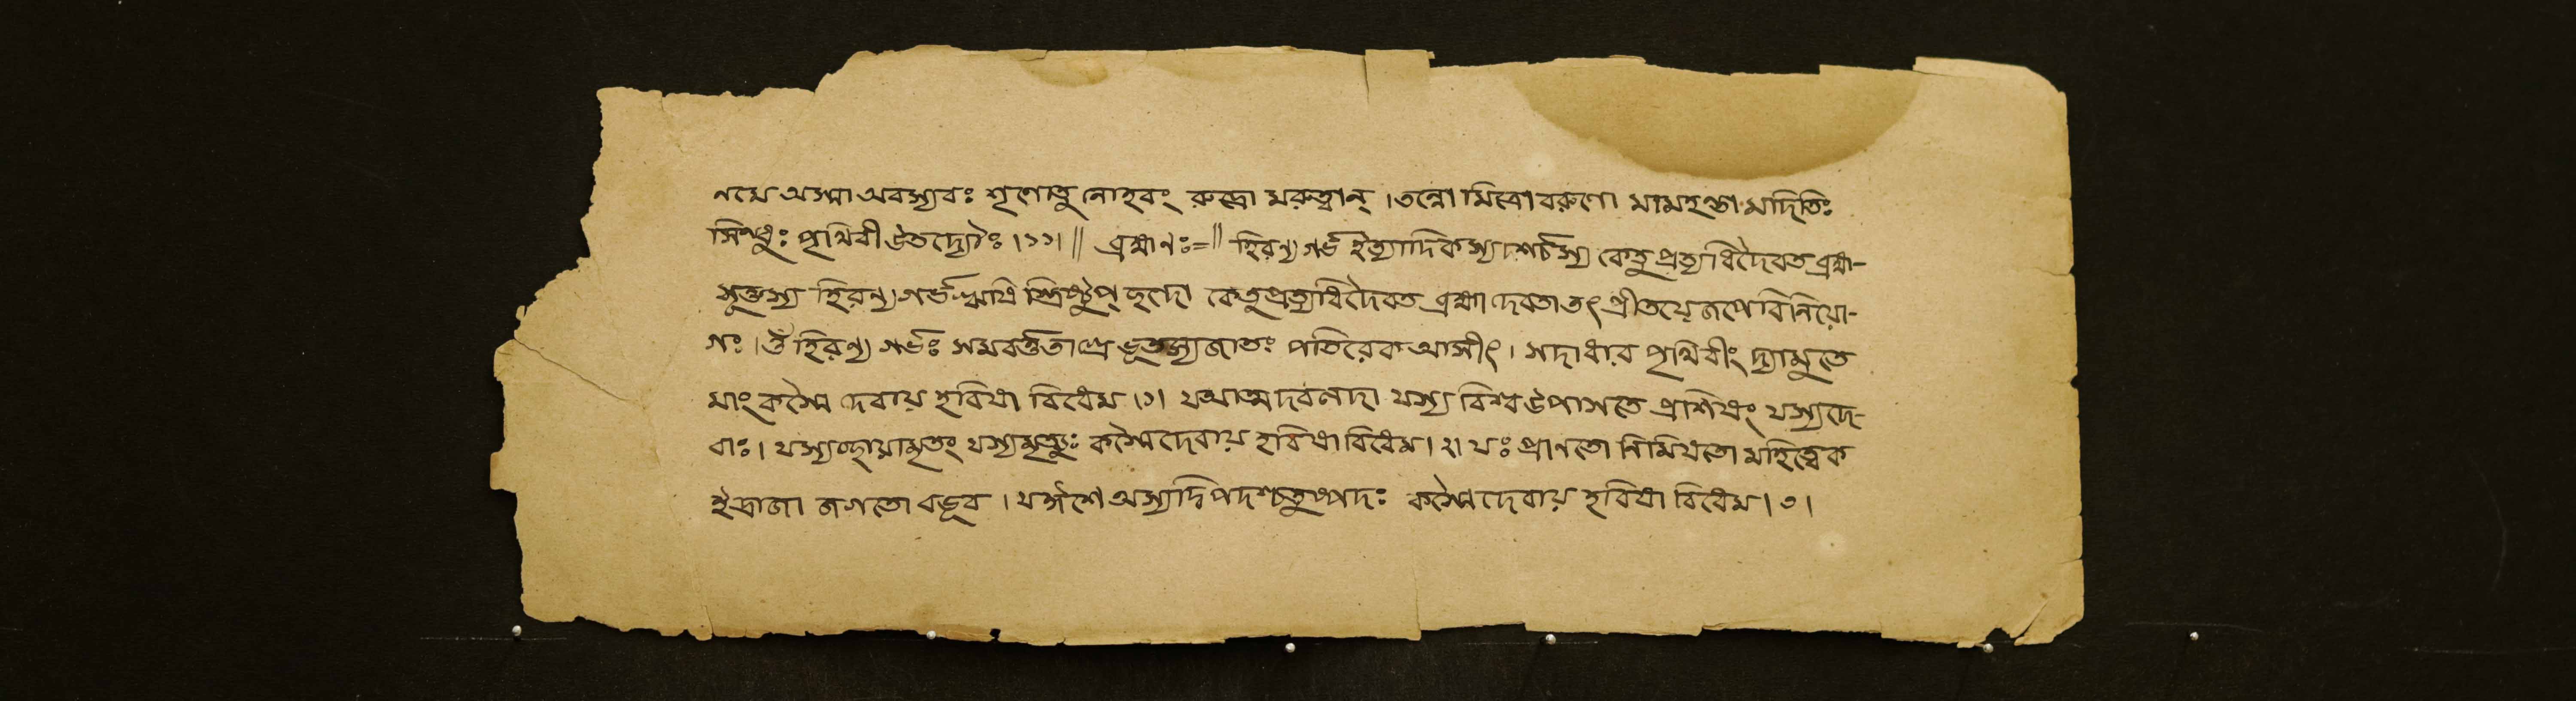 নমে অস্মা অবস্যবঃ শৃণোতু নোহবং রুদ্রো মরুত্বান্ । তন্নো মিত্রো বরুণো মামহন্তা মদিতিঃ
সিন্ধুঃ পৃথিবী উতদ্যৌঃ ।১১। ॥ ব্রহ্মাণঃ= ॥ হিরণ্য গর্ভ ইত্যাদিকস্য দশর্চস্য কেতু প্রত্যধিদৈবত ব্রহ্ম-
সূক্তস্য হিরণ্যগর্ভ ঋষি স্ত্রিষ্টুপ্ ছন্দো কেতুপ্রত্যধিদৈবত ব্রহ্মা দেবতা তৎ প্রীতয়ে জপে বিনিয়ো-
গঃ । ওঁ হিরণ্য গর্ভঃ সমবর্ত্ততাগ্রে ভূতস্য জাতঃ পতিরেক আসীৎ । সদাধার পৃথিবীং দ্যামুতে
মাং কস্মৈ দেবায় হবিষা বিধেম ।১। যআত্মদবলদা যস্য বিশ্ব উপাসতে প্রশিষং যস্যদে-
বাঃ । যস্যচ্ছায়ামৃতং যস্যমৃত্যুঃ কস্মৈদেবায় হবিষা বিধেম । ২। যঃ প্রাণতো নিমিষতো মহিত্বৈক
ইদ্রাজা জগতো বভূব । যঈশে অস্যদ্বিপদশ্চতুষ্পদঃ কস্মৈদেবায় হবিষা বিধেম । ৩।